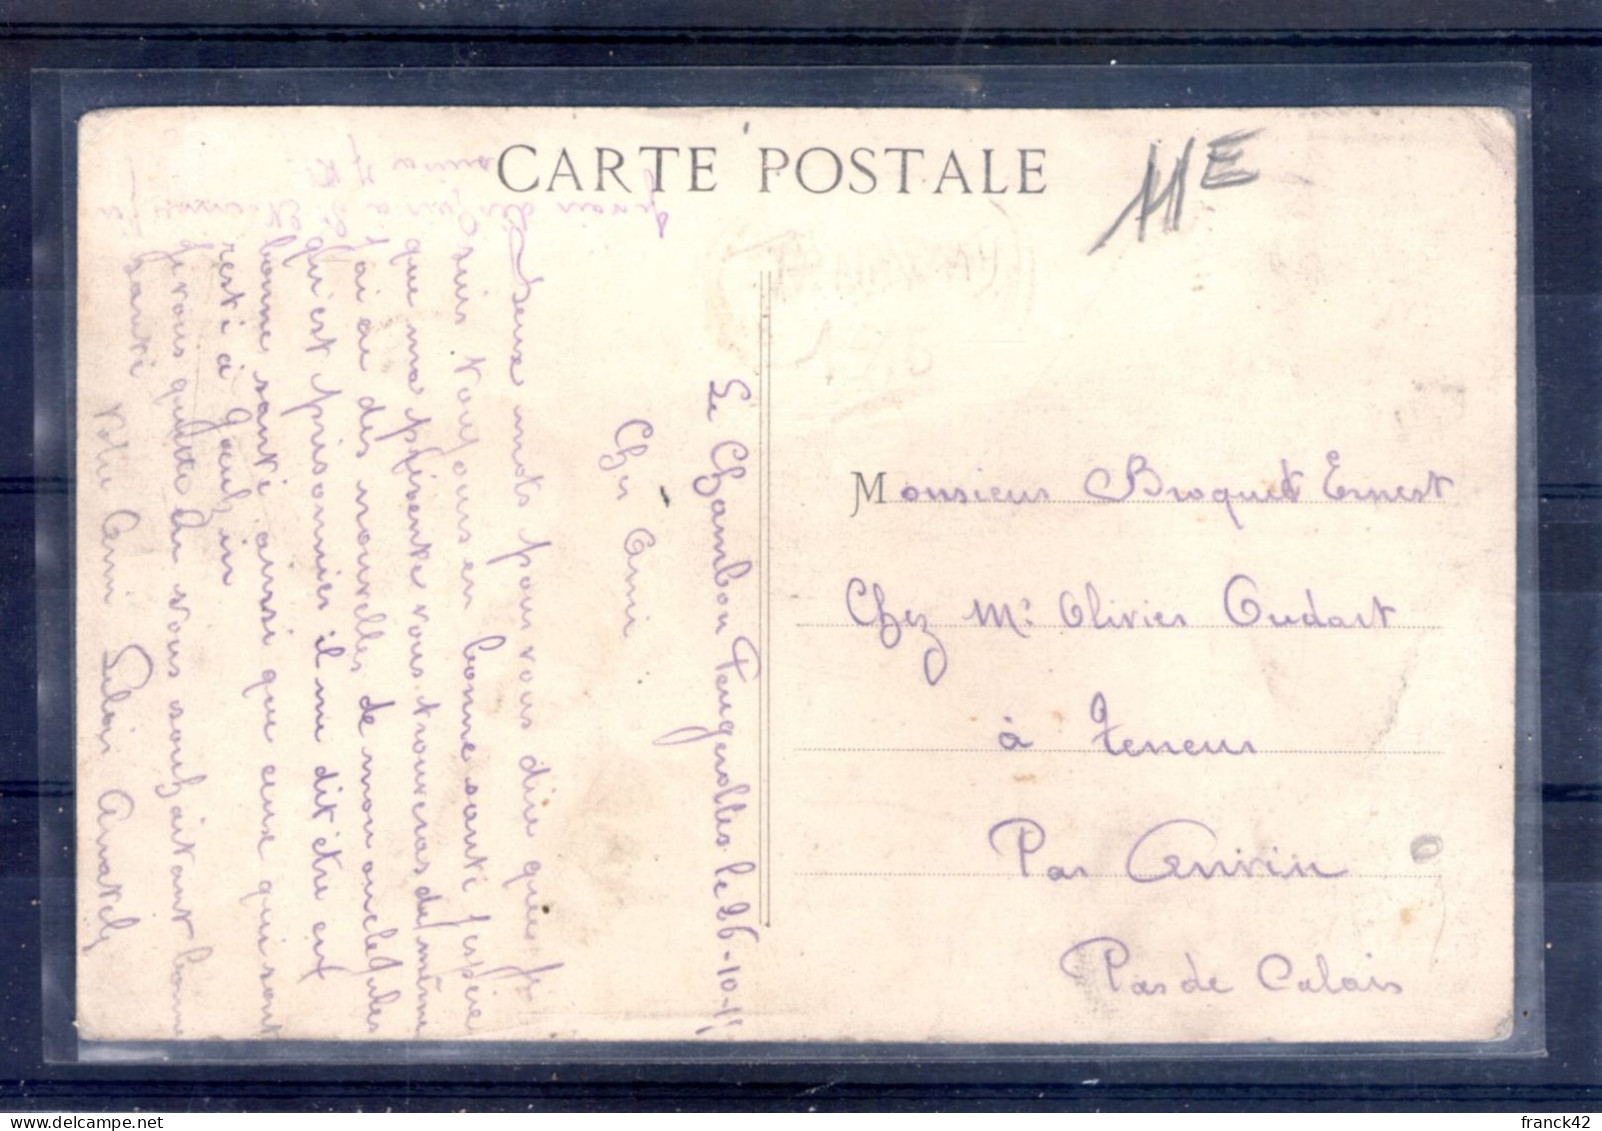 CARTE POSTALE
11E
Le Chambon Feugerolles le 26-10-15
Cher Ami
Deux mots pour vous dire que je
suis toujours en bonne santé j'espère
que ma présente vous trouveras de même
j'ai eu des nouvelles de mon oncle Jules
qu'est prisonnier il me dit être en
bonne santé ainsi que ceux qui sont
resté à
je vous quitte en vous souhaitant bonne
santé
votre Ami
Monsieur Broquet Ernest
Chez Mr Olivier Oudart
à Teneur
Par Anvin
Pas de Calais
franck42